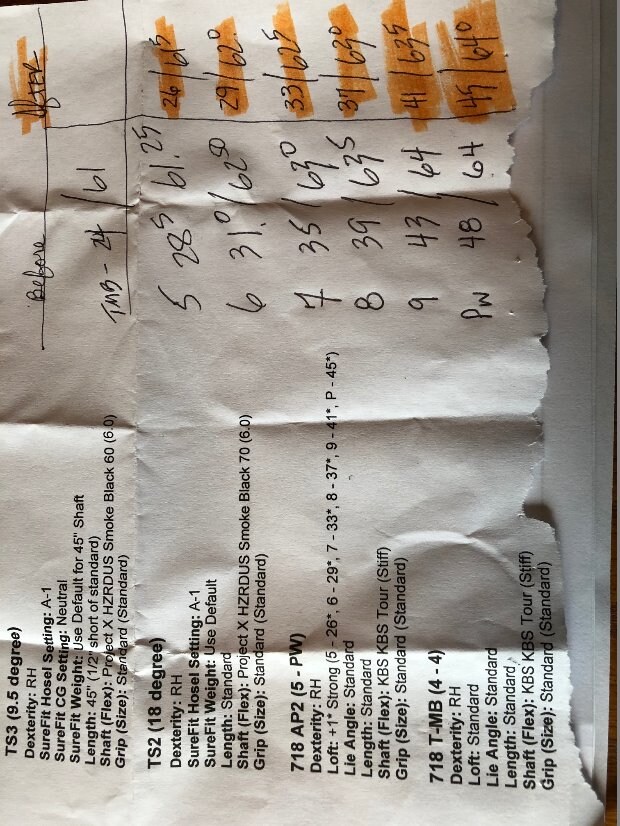 TS3 (9.5 degree)
Dexterity: RH
SureFit Hosel Setting: A-1
SureFit CG Setting: Neutral
SureFit Weight: Use Default for 45" Shaft
Length: 45" (1/2" short of standard)
Shaft (Flex): Project X HZRDUS Smoke Black 60 (6.0)
Grip (Size): Standard (Standard)
TS2 (18 degree)
Dexterity: RH
SureFit Hosel Setting: A-1
SureFit Weight: Use Default
Length: Standard
Shaft (Flex): Project X HZRDUS Smoke Black 70 (6.0)
Grip (Size): Standard (Standard)
718 AP2 (5 - PW)
Dexterity: RH
Loft: +1* Strong (5 - 26*, 6 - 29*, 7 - 33*, 8 - 37*, 9 - 41*, P - 45*)
Lie Angle: Standard
Length: Standard
Shaft (Flex): KBS KBS Tour (Stiff)
Grip (Size): Standard (Standard)
718 T-MB (4 - 4)
Dexterity: RH
Loft: Standard
Lie Angle: Standard
Length: Standard
Shaft (Flex): KBS KBS Tour (Stiff)
Grip (Size): Standard (Standard)
Before After
TMB - 24 / 61
5 28⁵ 61.25 26/61⁵
6 31.0/62⁵⁰ 29/62⁰
7 35/63⁰ 33/62⁵
8 39/63⁵ 37/63⁰
9 43/64 41/63⁵
PW 48/64 45/64⁰